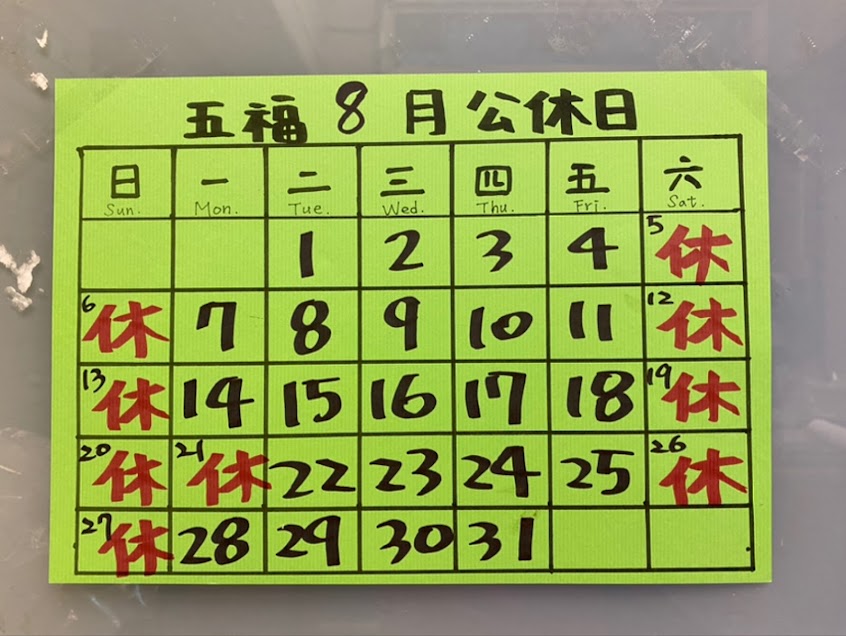 五福8月公休日
日 一 二 三 四 五 六
Sun. Mon. Tue. Wed. Thu. Fri. Sat.
1 2 3 4 5休
6休 7 8 9 10 11 12休
13休 14 15 16 17 18 19休
20休 21休 22 23 24 25 26休
27休 28 29 30 31